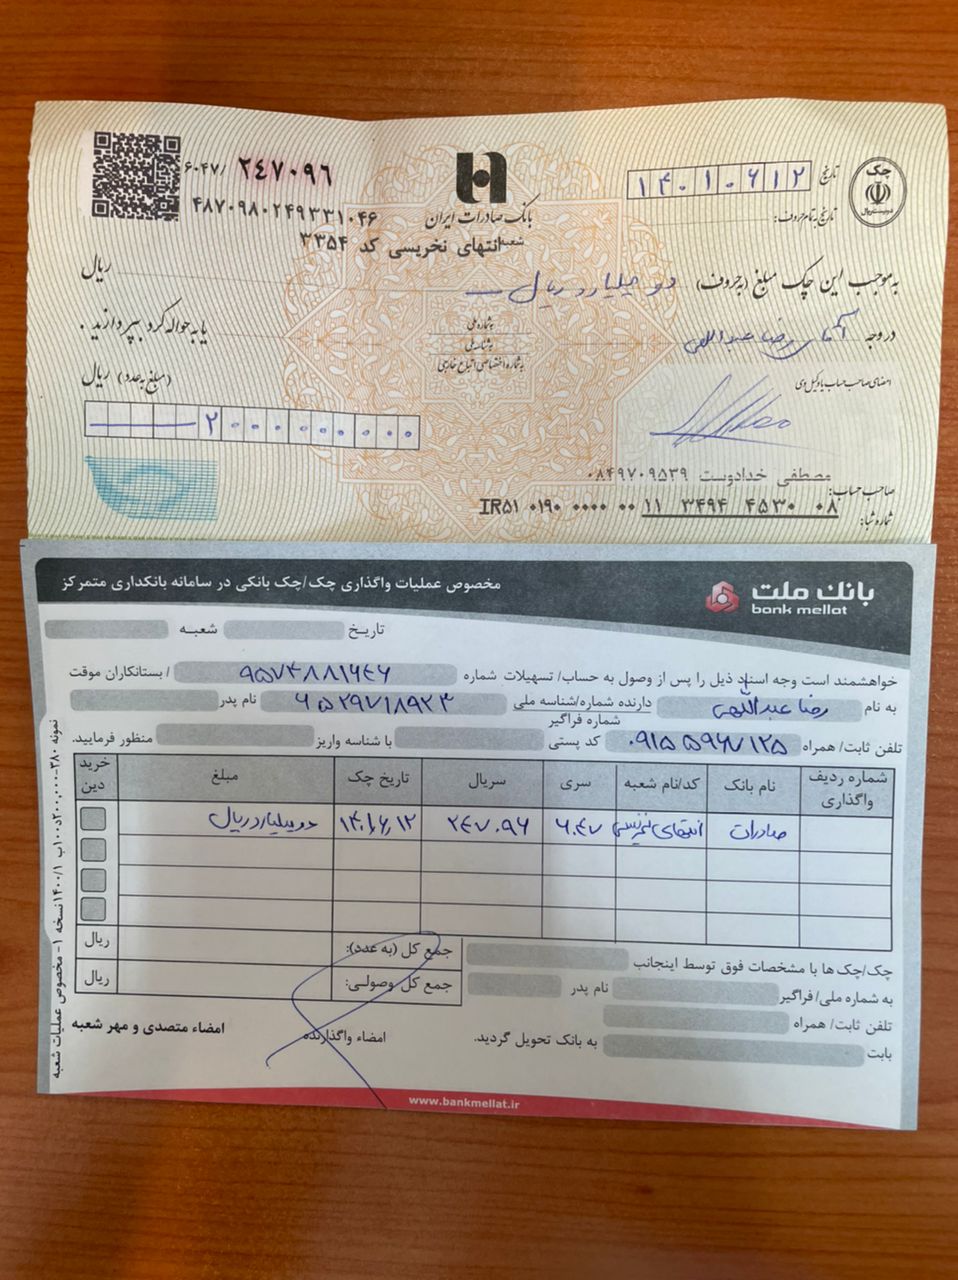 ۶۰۴۷/ ۲۴۷۰۹۶
۴۸۷۰۹۸۰۲۴۹۳۳۱۰۴۶
بانک صادرات ایران
شعبه انتهای نخریسی کد ۳۳۵۴
چک
تاریخ ۱۴۰۱۰۶۱۲
تاریخ به تمام حروف:
به موجب این چک مبلغ (به حروف) دو میلیارد ریال ریال
در وجه آقای رضا عبداللهی یا به حواله کرد بپردازند .
به شماره ملی
به شناسه ملی
به شماره اختصاصی اتباع خارجی
(مبلغ به عدد) ریال
۲۰۰۰۰۰۰۰۰۰
امضای صاحب حساب یا وکیل وی
مصطفی خدادوست ۰۸۴۹۷۰۹۵۳۹
صاحب حساب:
شماره شبا: IR۵۱ ۰۱۹۰ ۰۰۰۰ ۰۰ ۱۱ ۳۴۹۴ ۴۵۳۰ ۰۸
مخصوص عملیات واگذاری چک/چک بانکی در سامانه بانکداری متمرکز
بانک ملت
bank mellat
تاریخ شعبه
خواهشمند است وجه اسناد ذیل را پس از وصول به حساب/ تسهیلات شماره ۹۵۷۴۸۸۱۶۴۶ / بستانکاران موقت
به نام رضا عبداللهی دارنده شماره/شناسه ملی ۶۵۲۹۷۱۸۹۲۳ نام پدر
شماره فراگیر
تلفن ثابت/ همراه ۰۹۱۵۵۹۶۷۱۲۵ کد پستی با شناسه واریز منظور فرمایید.
شماره ردیف واگذاری نام بانک کد/نام شعبه سری سریال تاریخ چک مبلغ خرید دین
صادرات انتهای نخریسی ۶۰۴۷ ۲۴۷۰۹۶ ۱۴۰۱/۶/۱۲ دو میلیارد ریال
جمع کل (به عدد): ریال
جمع کل وصولی: ریال
چک/چک ها با مشخصات فوق توسط اینجانب
به شماره ملی/ فراگیر نام پدر
تلفن ثابت/ همراه
بابت به بانک تحویل گردید.
امضاء واگذارنده
امضاء متصدی و مهر شعبه
www.bankmellat.ir